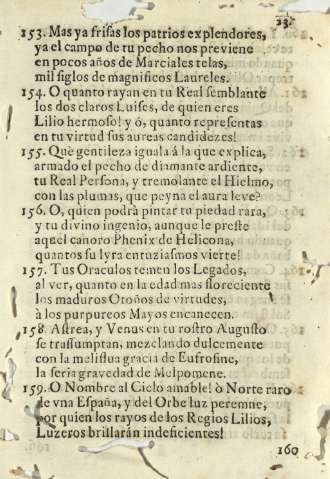 23.
153. Mas ya frisas los patrios explendores,
ya el campo de tu pecho nos previene
en pocos años de Marciales telas,
mil siglos de magnificos Laureles.
154. O quanto rayan en tu Real semblante
los dos claros Luises, de quien eres
Lilio hermoso! y ó, quanto representas
en tu virtud sus aureas candidezes!
155. Què gentileza iguala á la que explica,
armado el pecho de diamante ardiente,
tu Real Persona, y tremolante el Hielmo,
con las plumas, que peyna el aura leve?
156. O, quien podrà pintar tu piedad rara,
y tu divino ingenio, aunque le preste
aquel canoro Phenix de Helicona,
quantos su lyra entuziasmos vierte!
157. Tus Oraculos temen los Legados,
al ver, quanto en la edad mas floreciente
los maduros Otoños de virtudes,
à los purpureos Mayos encanecen.
158. Astrea, y Venus en tu rostro Augusto
se trassumptan, mezclando dulcemente
con la meliflua gracia de Eufrosine,
la seria gravedad de Melpomene.
159. O Nombre al Cielo amable! ò Norte raro
de vna España, y del Orbe luz peremne,
por quien los rayos de los Regios Lilios,
Luzeros brillarán indeficientes!
160